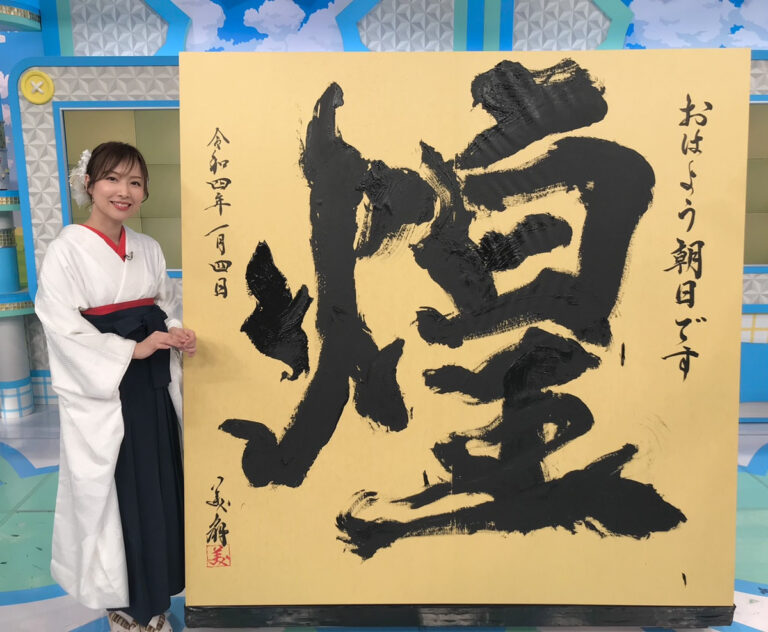 おはよう朝日です
煌
令和四年一月四日
美
美